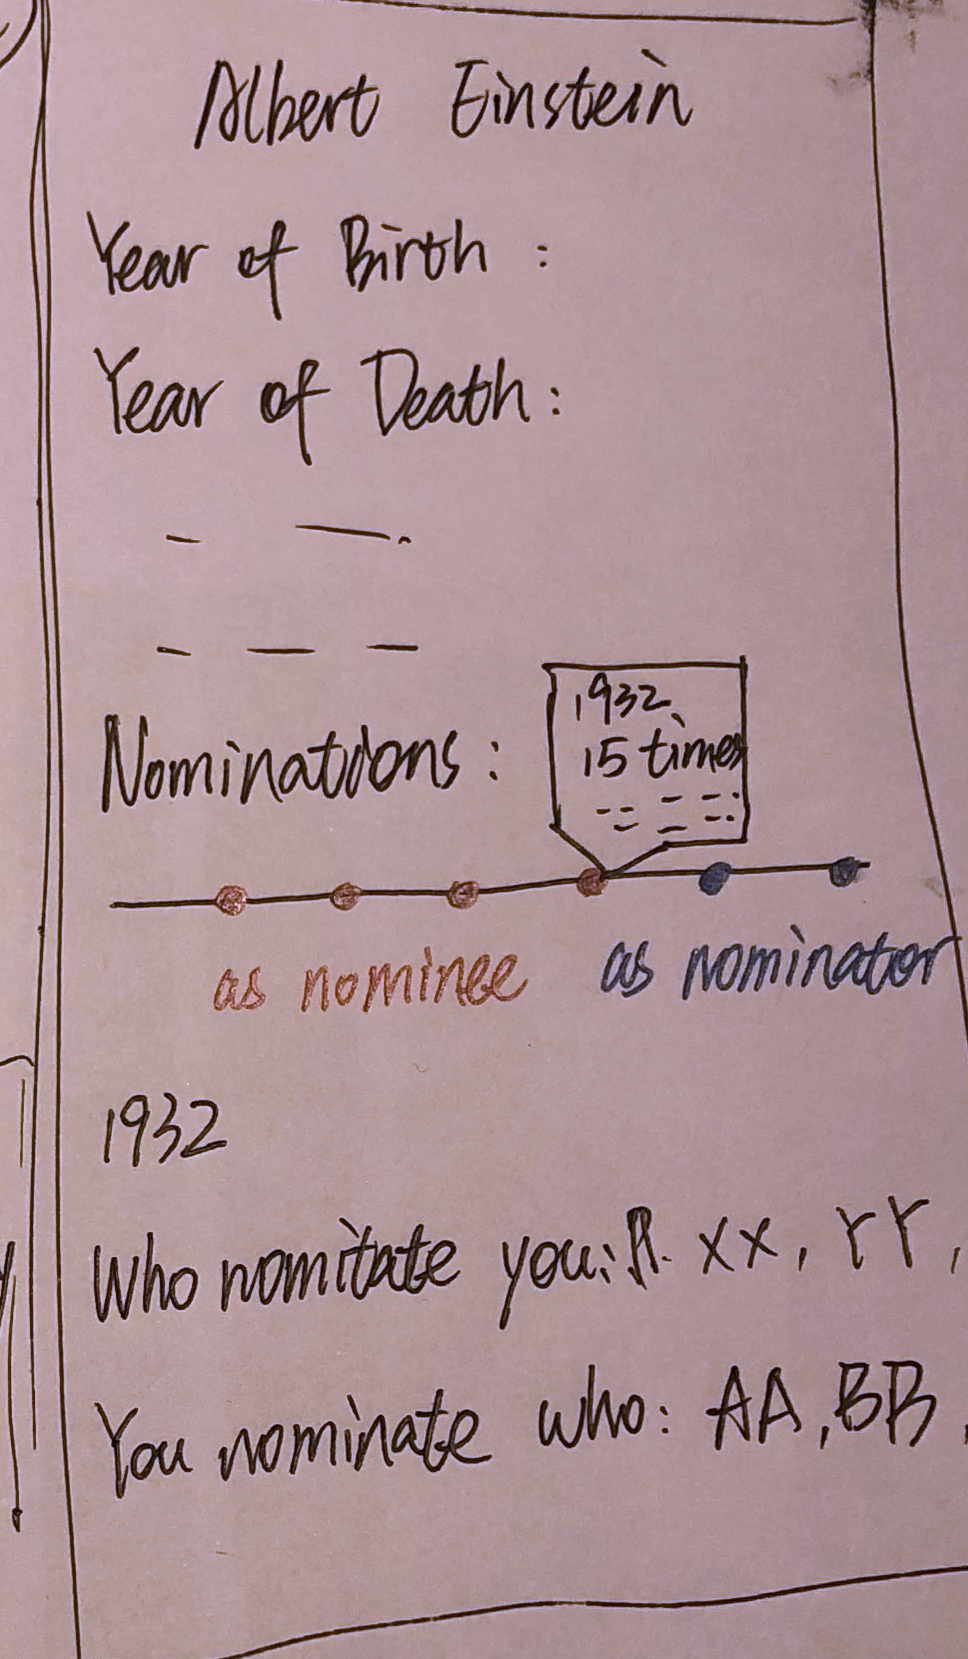 Albert Einstein
Year of Birth :
Year of Death :
Nominations :
1932
15 times
as nominee as nominator
1932
Who nomitate you: XX, YY,
You nominate who: AA, BB,